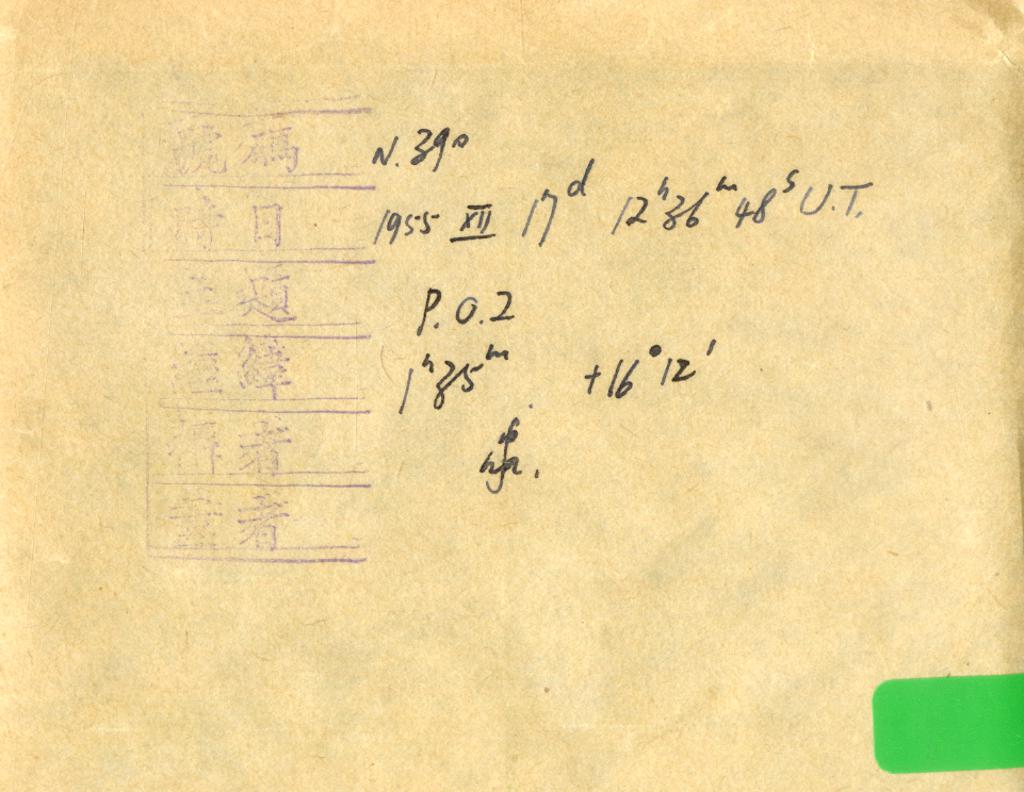 號碼 N. 390
時日 1955 XII 17ᵈ 12ʰ36ᵐ48ˢ U.T.
主題 P.O.2
經緯 1ʰ35ᵐ +16°12′
者
者